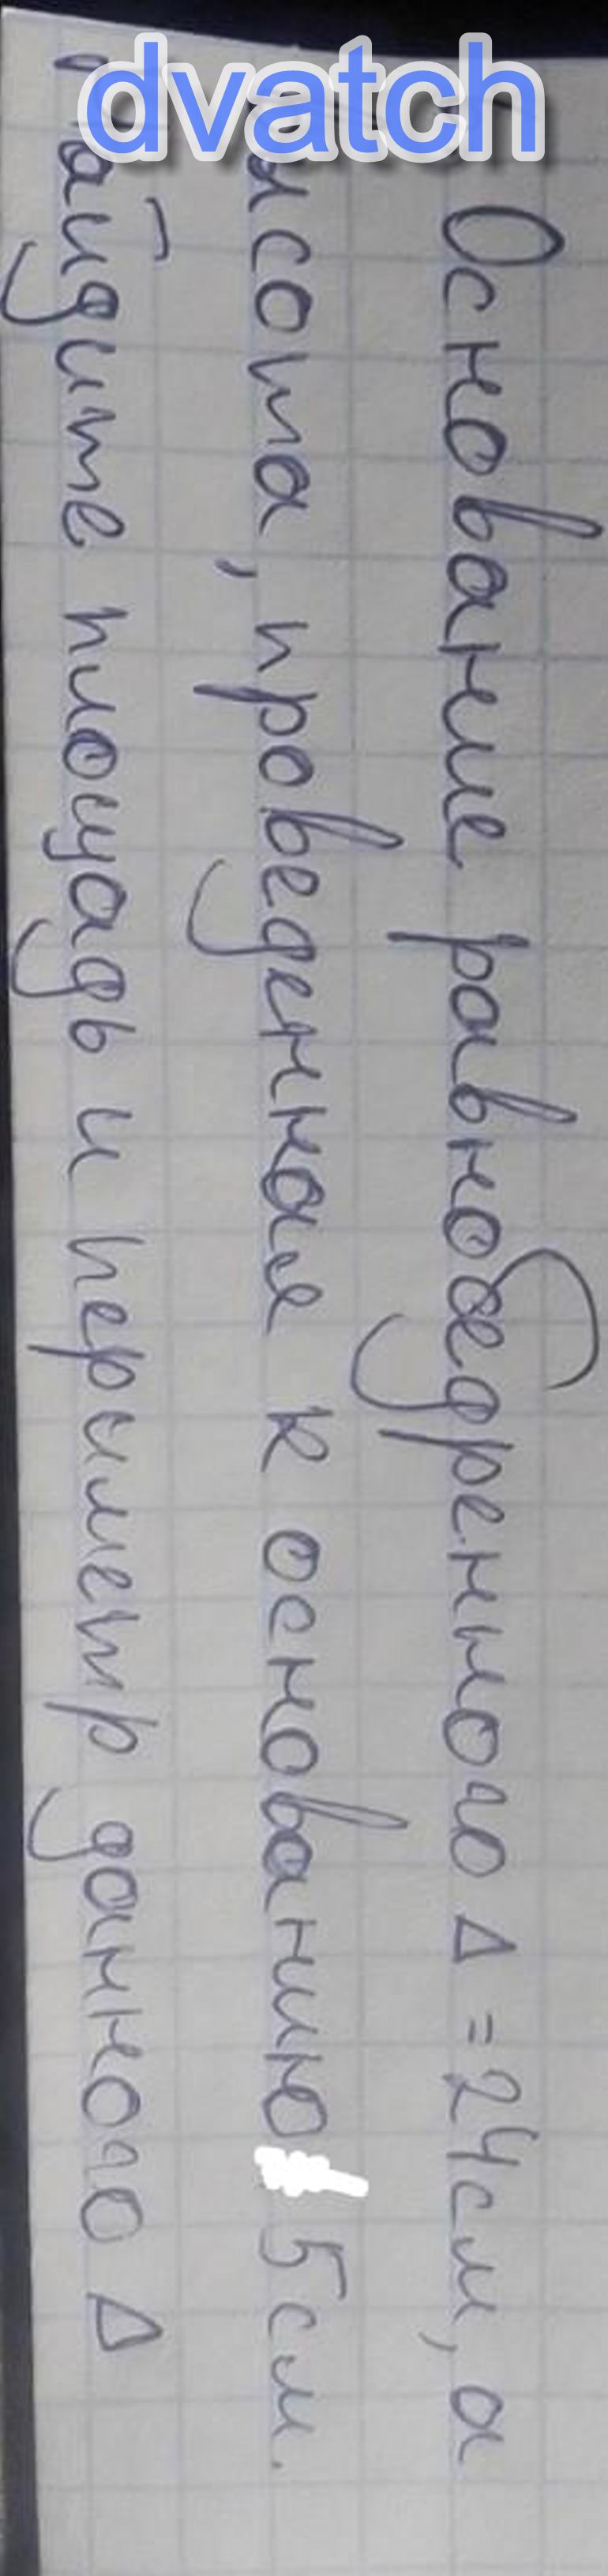 dvatch
Основание равнобедренного Δ = 24см, а
высота, проведенная к основанию 5см.
Найдите площадь и периметр данного Δ